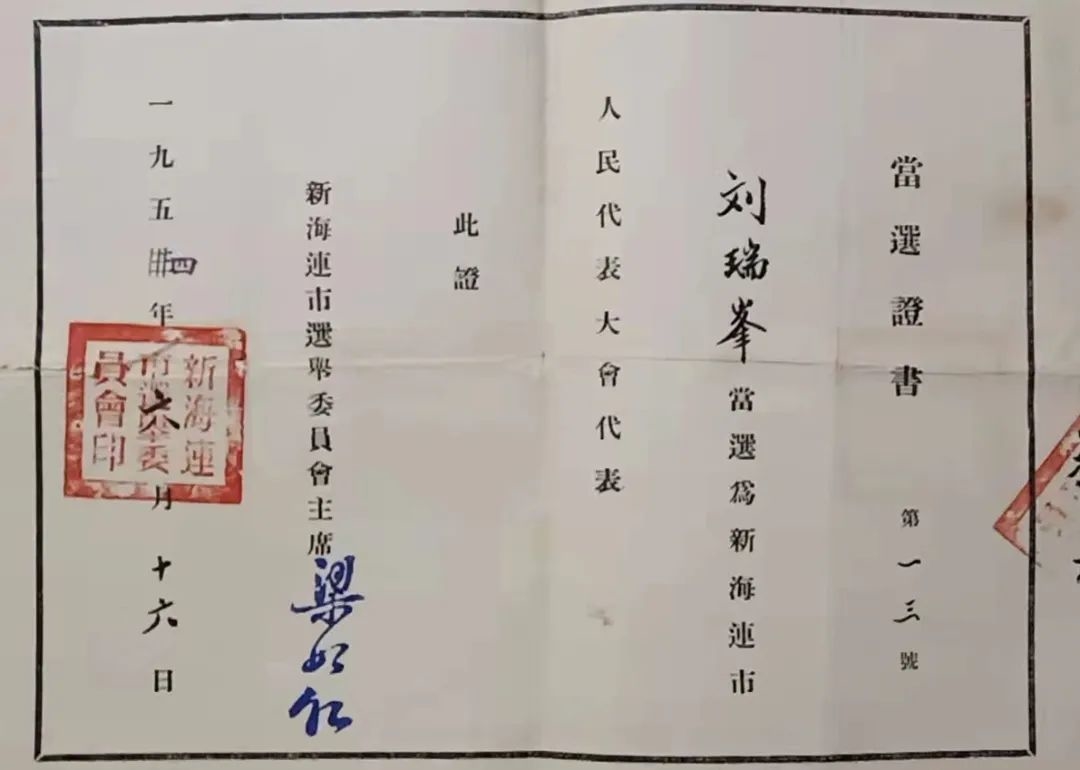 當選證書 第一三號
刘瑞峯當選爲新海連市
人民代表大會代表
此證
新海連市選舉委員會主席 梁如仁
一九五四年六月十六日
新海連
市選舉委
員會印